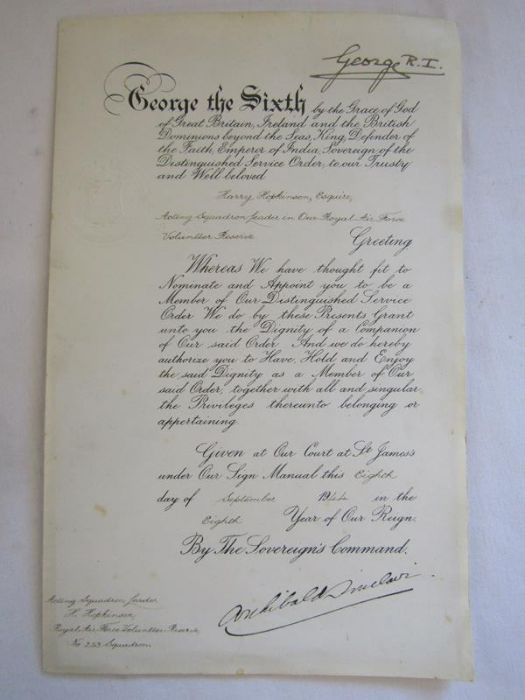 George R.I.
George the Sixth by the Grace of God
of Great Britain, Ireland and the British
Dominions beyond the Seas, King, Defender of
the Faith, Emperor of India, Sovereign of the
Distinguished Service Order, to our Trusty
and Well beloved
Harry Hopkinson, Esquire,
Acting Squadron Leader in Our Royal Air Force
Volunteer Reserve
Greeting
Whereas We have thought fit to
Nominate and Appoint you to be a
Member of Our Distinguished Service
Order We do by these Presents Grant
unto you the Dignity of a Companion
of Our said Order And we do hereby
authorize you to Have, Hold and Enjoy
the said Dignity as a Member of Our
said Order, together with all and singular
the Privileges thereunto belonging or
appertaining
Given at Our Court at St James's
under Our Sign Manual this Eighth
day of September 1944 in the
Eighth Year of Our Reign.
By The Sovereign's Command.
Archibald Sinclair
Acting Squadron Leader
H. Hopkinson
Royal Air Force Volunteer Reserve
No Squadron